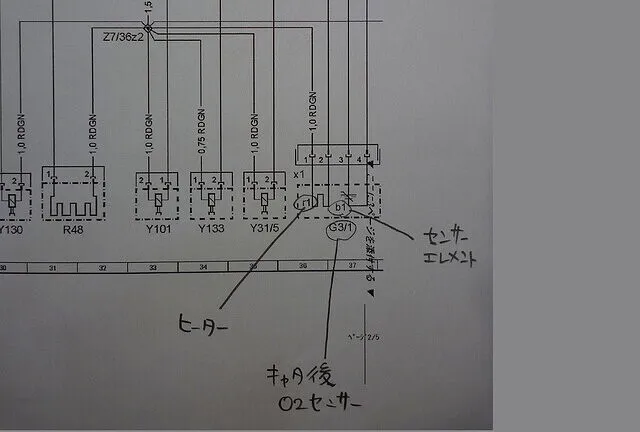 1,5
Z7/36z2
1,0 RDGN
1,0 RDGN
1,0 RDGN
0,75 RDGN
1,0 RDGN
1,0 RDGN
1 2 3 4
x1
2 1 2 2 1 2 1 2 1
r1 b1
Y130 R48 Y101 Y133 Y31/5 G3/1
30 31 32 33 34 35 36 37
センサー
エレメント
ヒーター
ページ 2/5
キャタ後
O2センサー